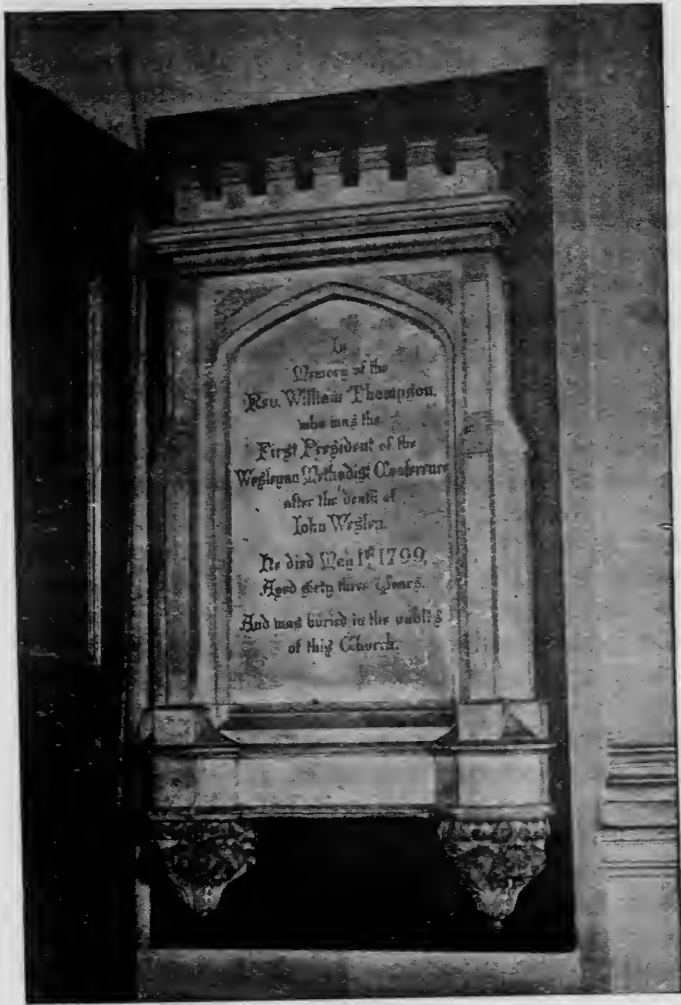 In
Memory of the
Rev. William Thompson,
who was the
First President of the
Wesleyan Methodist Conference
after the death of
John Wesley.
He died May 1st 1799,
Aged sixty three Years.
And was buried in the vaults
of this Church.